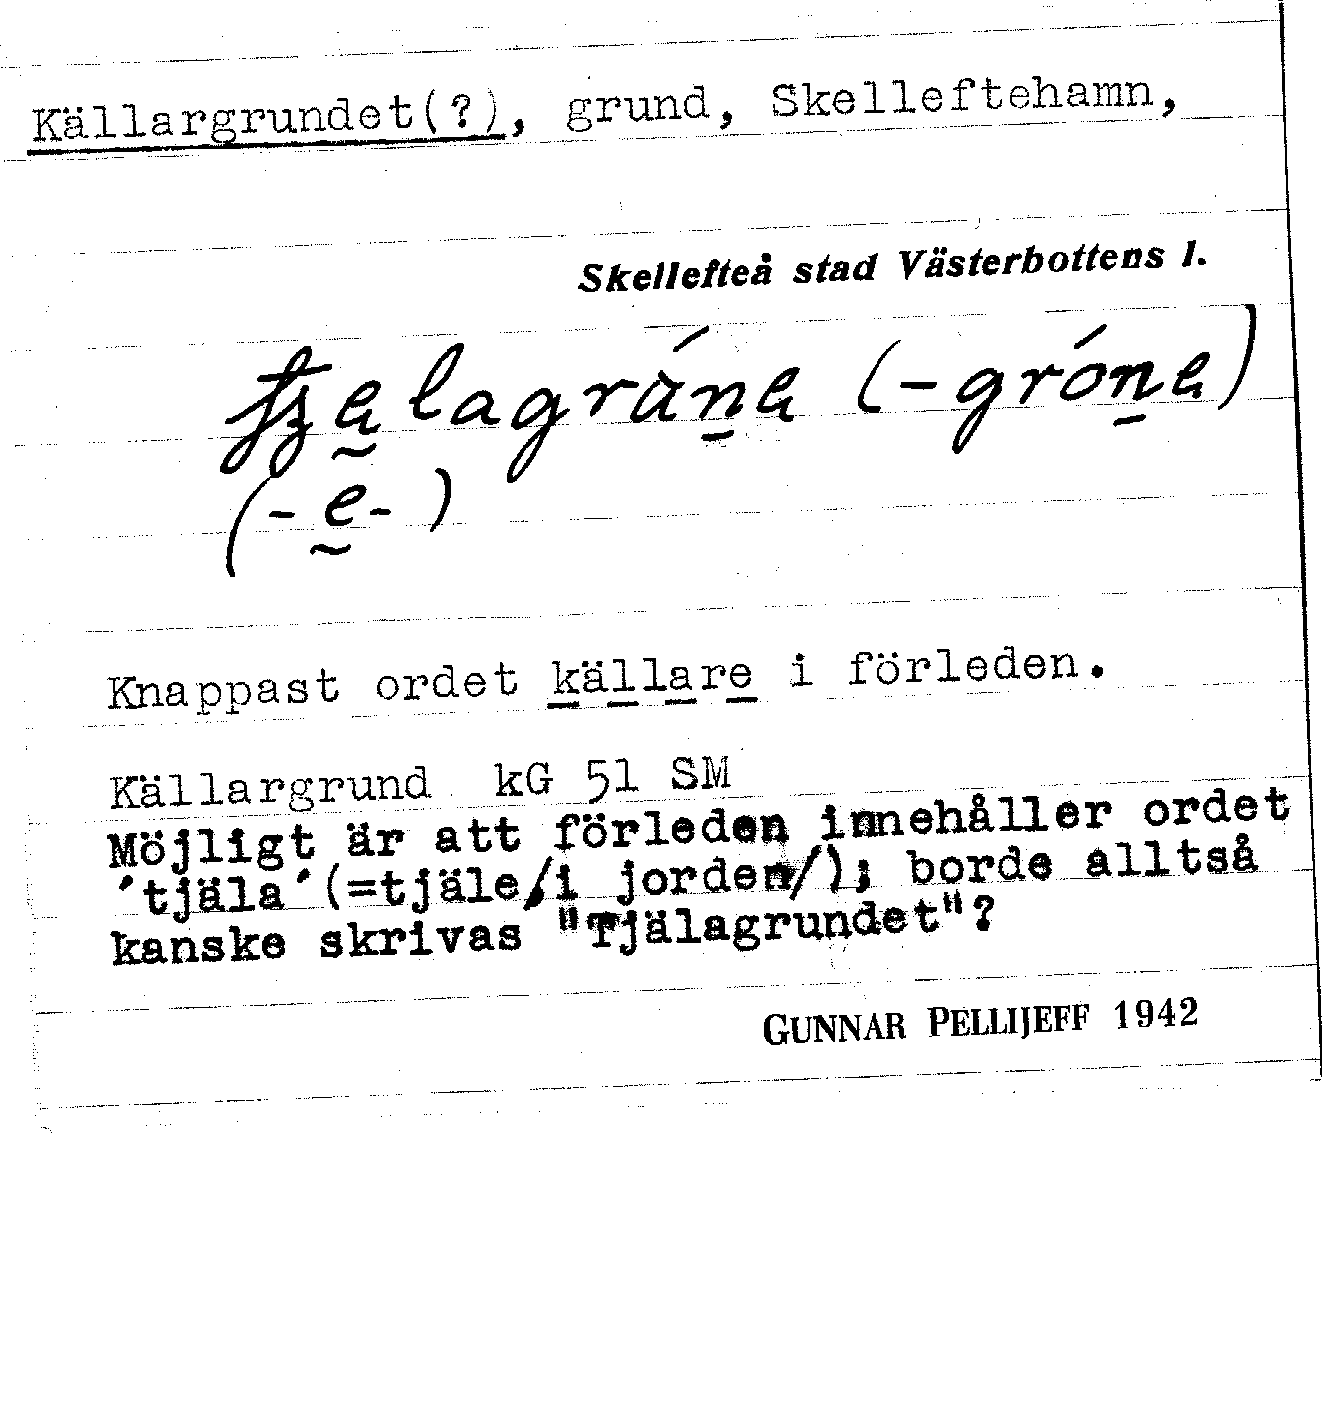 Källargrundet(?), grund, Skelleftehamn,
Skellefteå stad Västerbottens l.
(-e-)
Knappast ordet källare i förleden.
Källargrund kG 51 SM
Möjligt är att förleden innehåller ordet
'tjäla'(=tjäle/i jorden/); borde alltså
kanske skrivas "Tjälagrundet"?
GUNNAR PELLIJEFF 1942